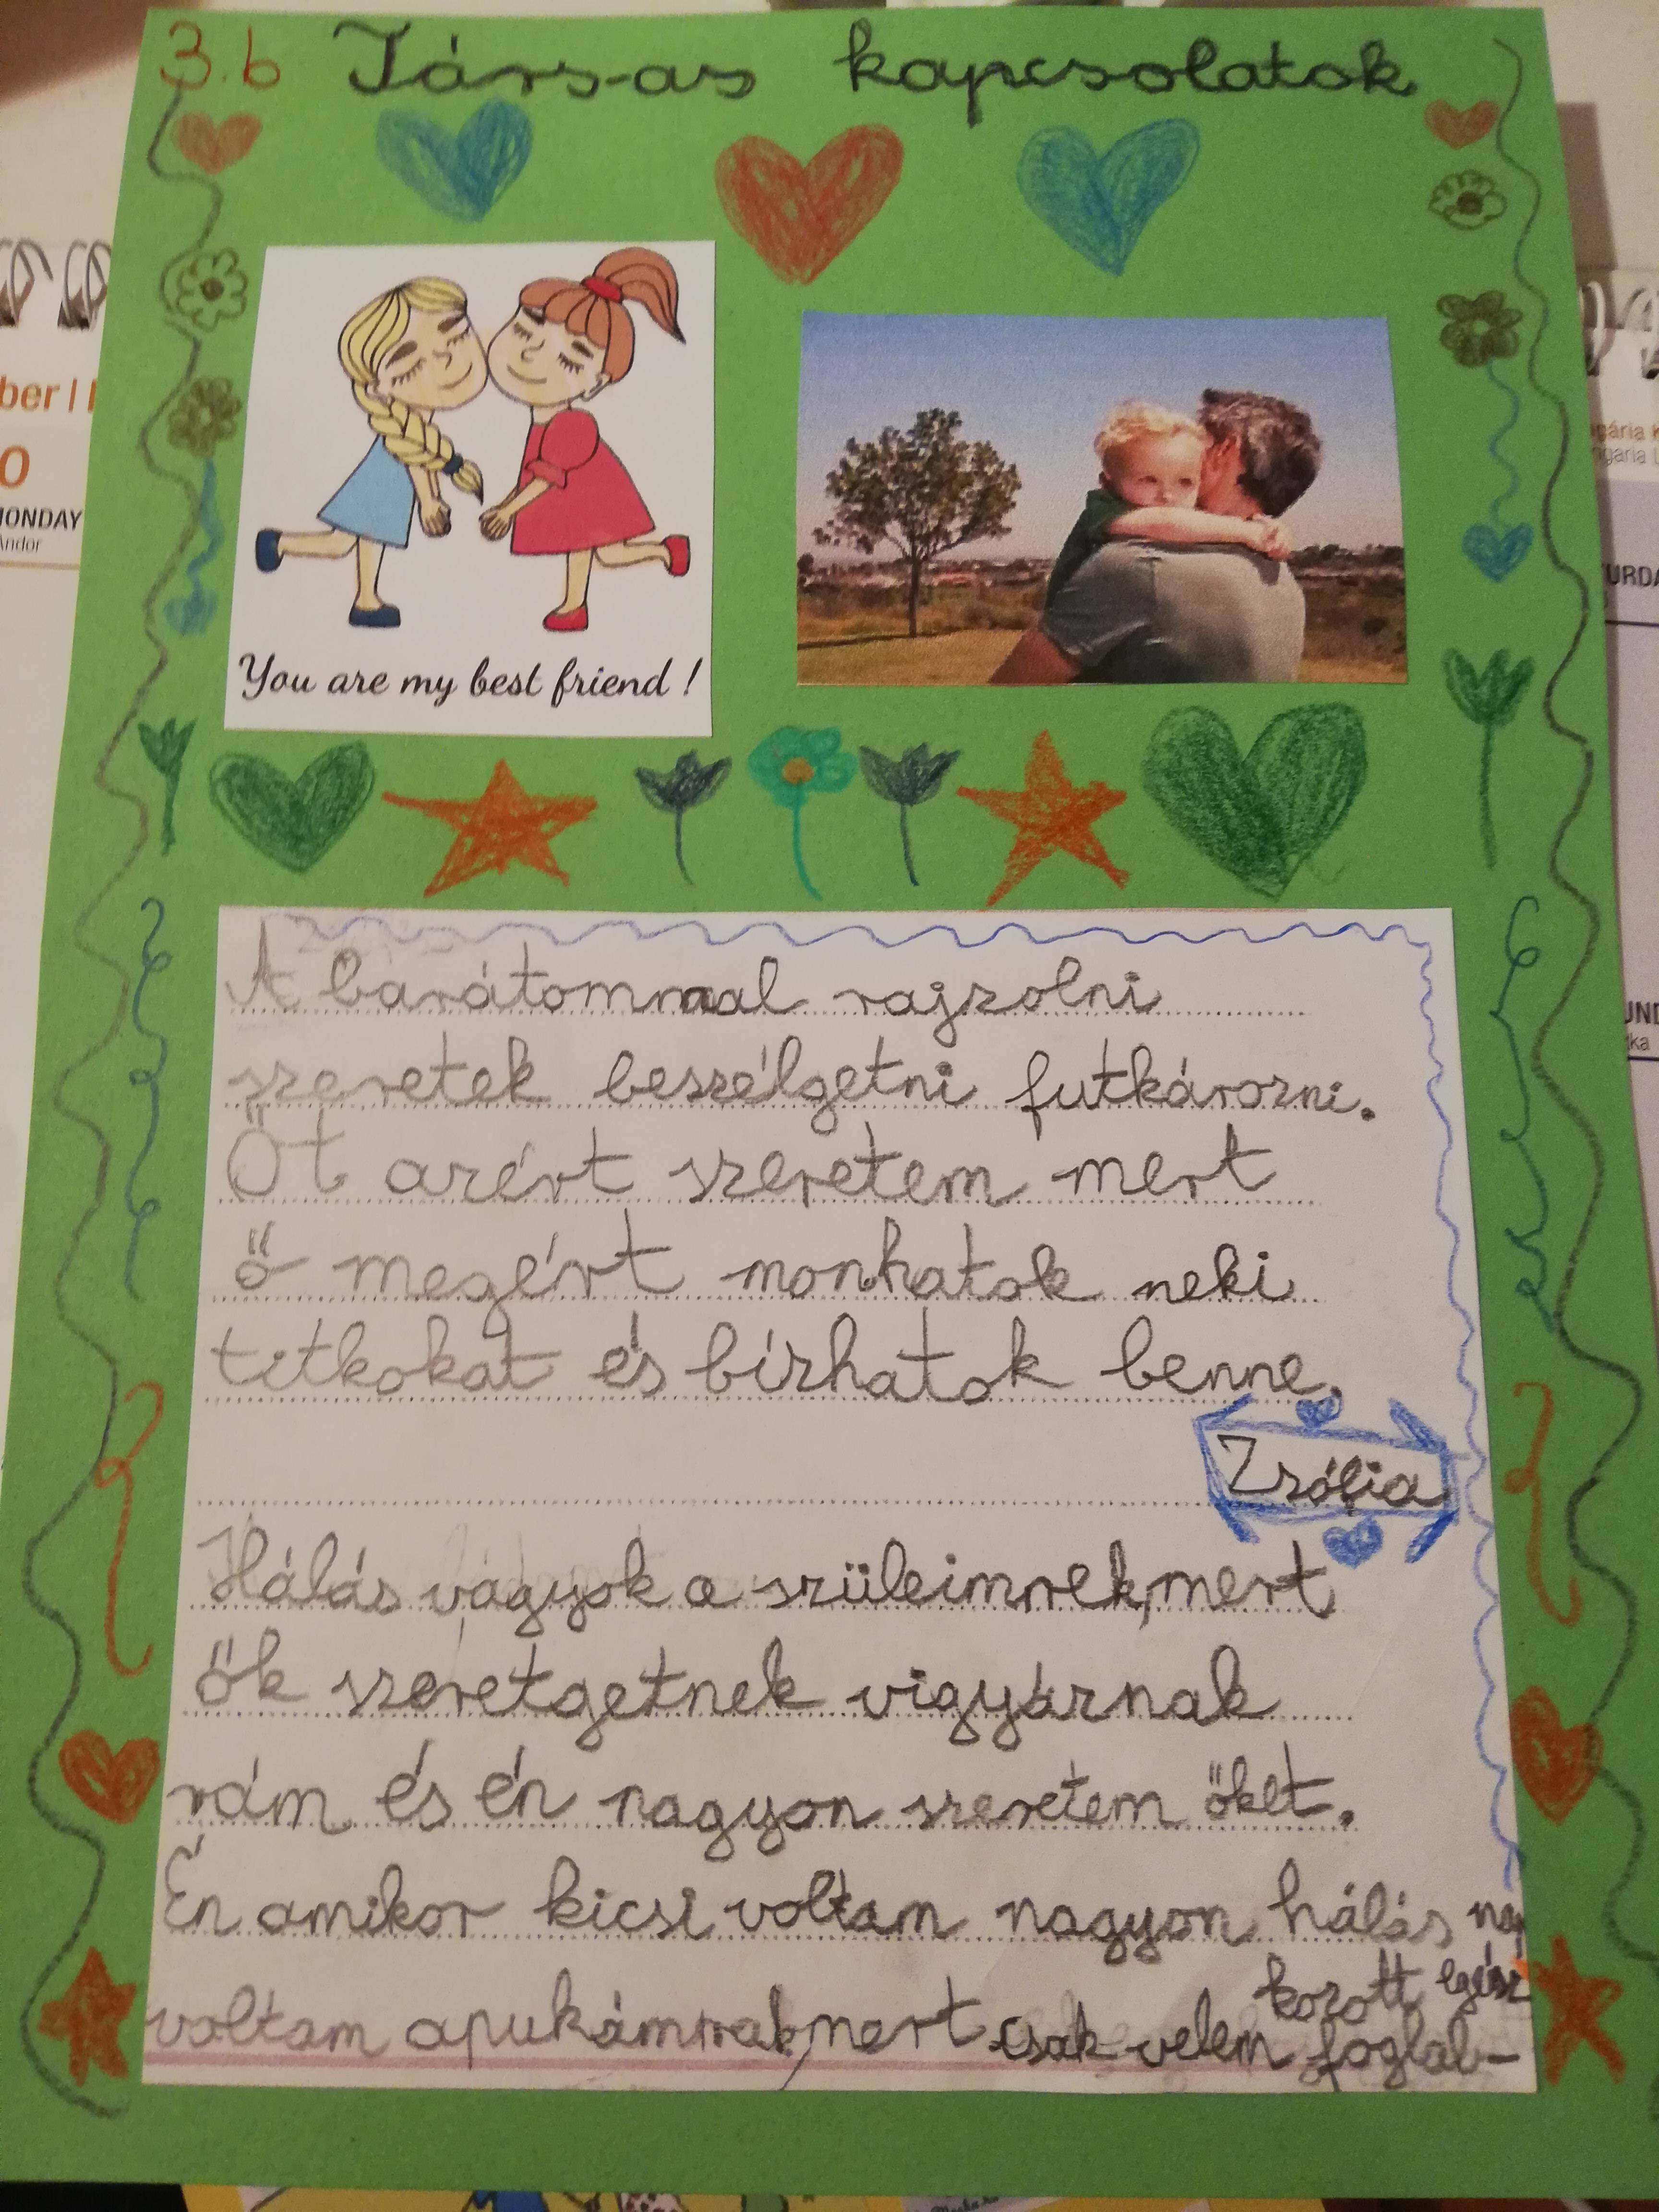 3.b Társas kapcsolatok
You are my best friend!
A barátommal rajzolni
szeretek beszélgetni futkározni.
Őt azért szeretem mert
ő megért monhatok neki
titkokat és bízhatok benne.
Zsófia
Hálás vagyok a szüleimnek, mert
ők szeretgetnek vigyáznak
rám és én nagyon szeretem őket.
Én amikor kicsi voltam nagyon hálás
voltam apukámnak, mert csak velem foglal-
kozott egész
nap
MONDAY
Andor